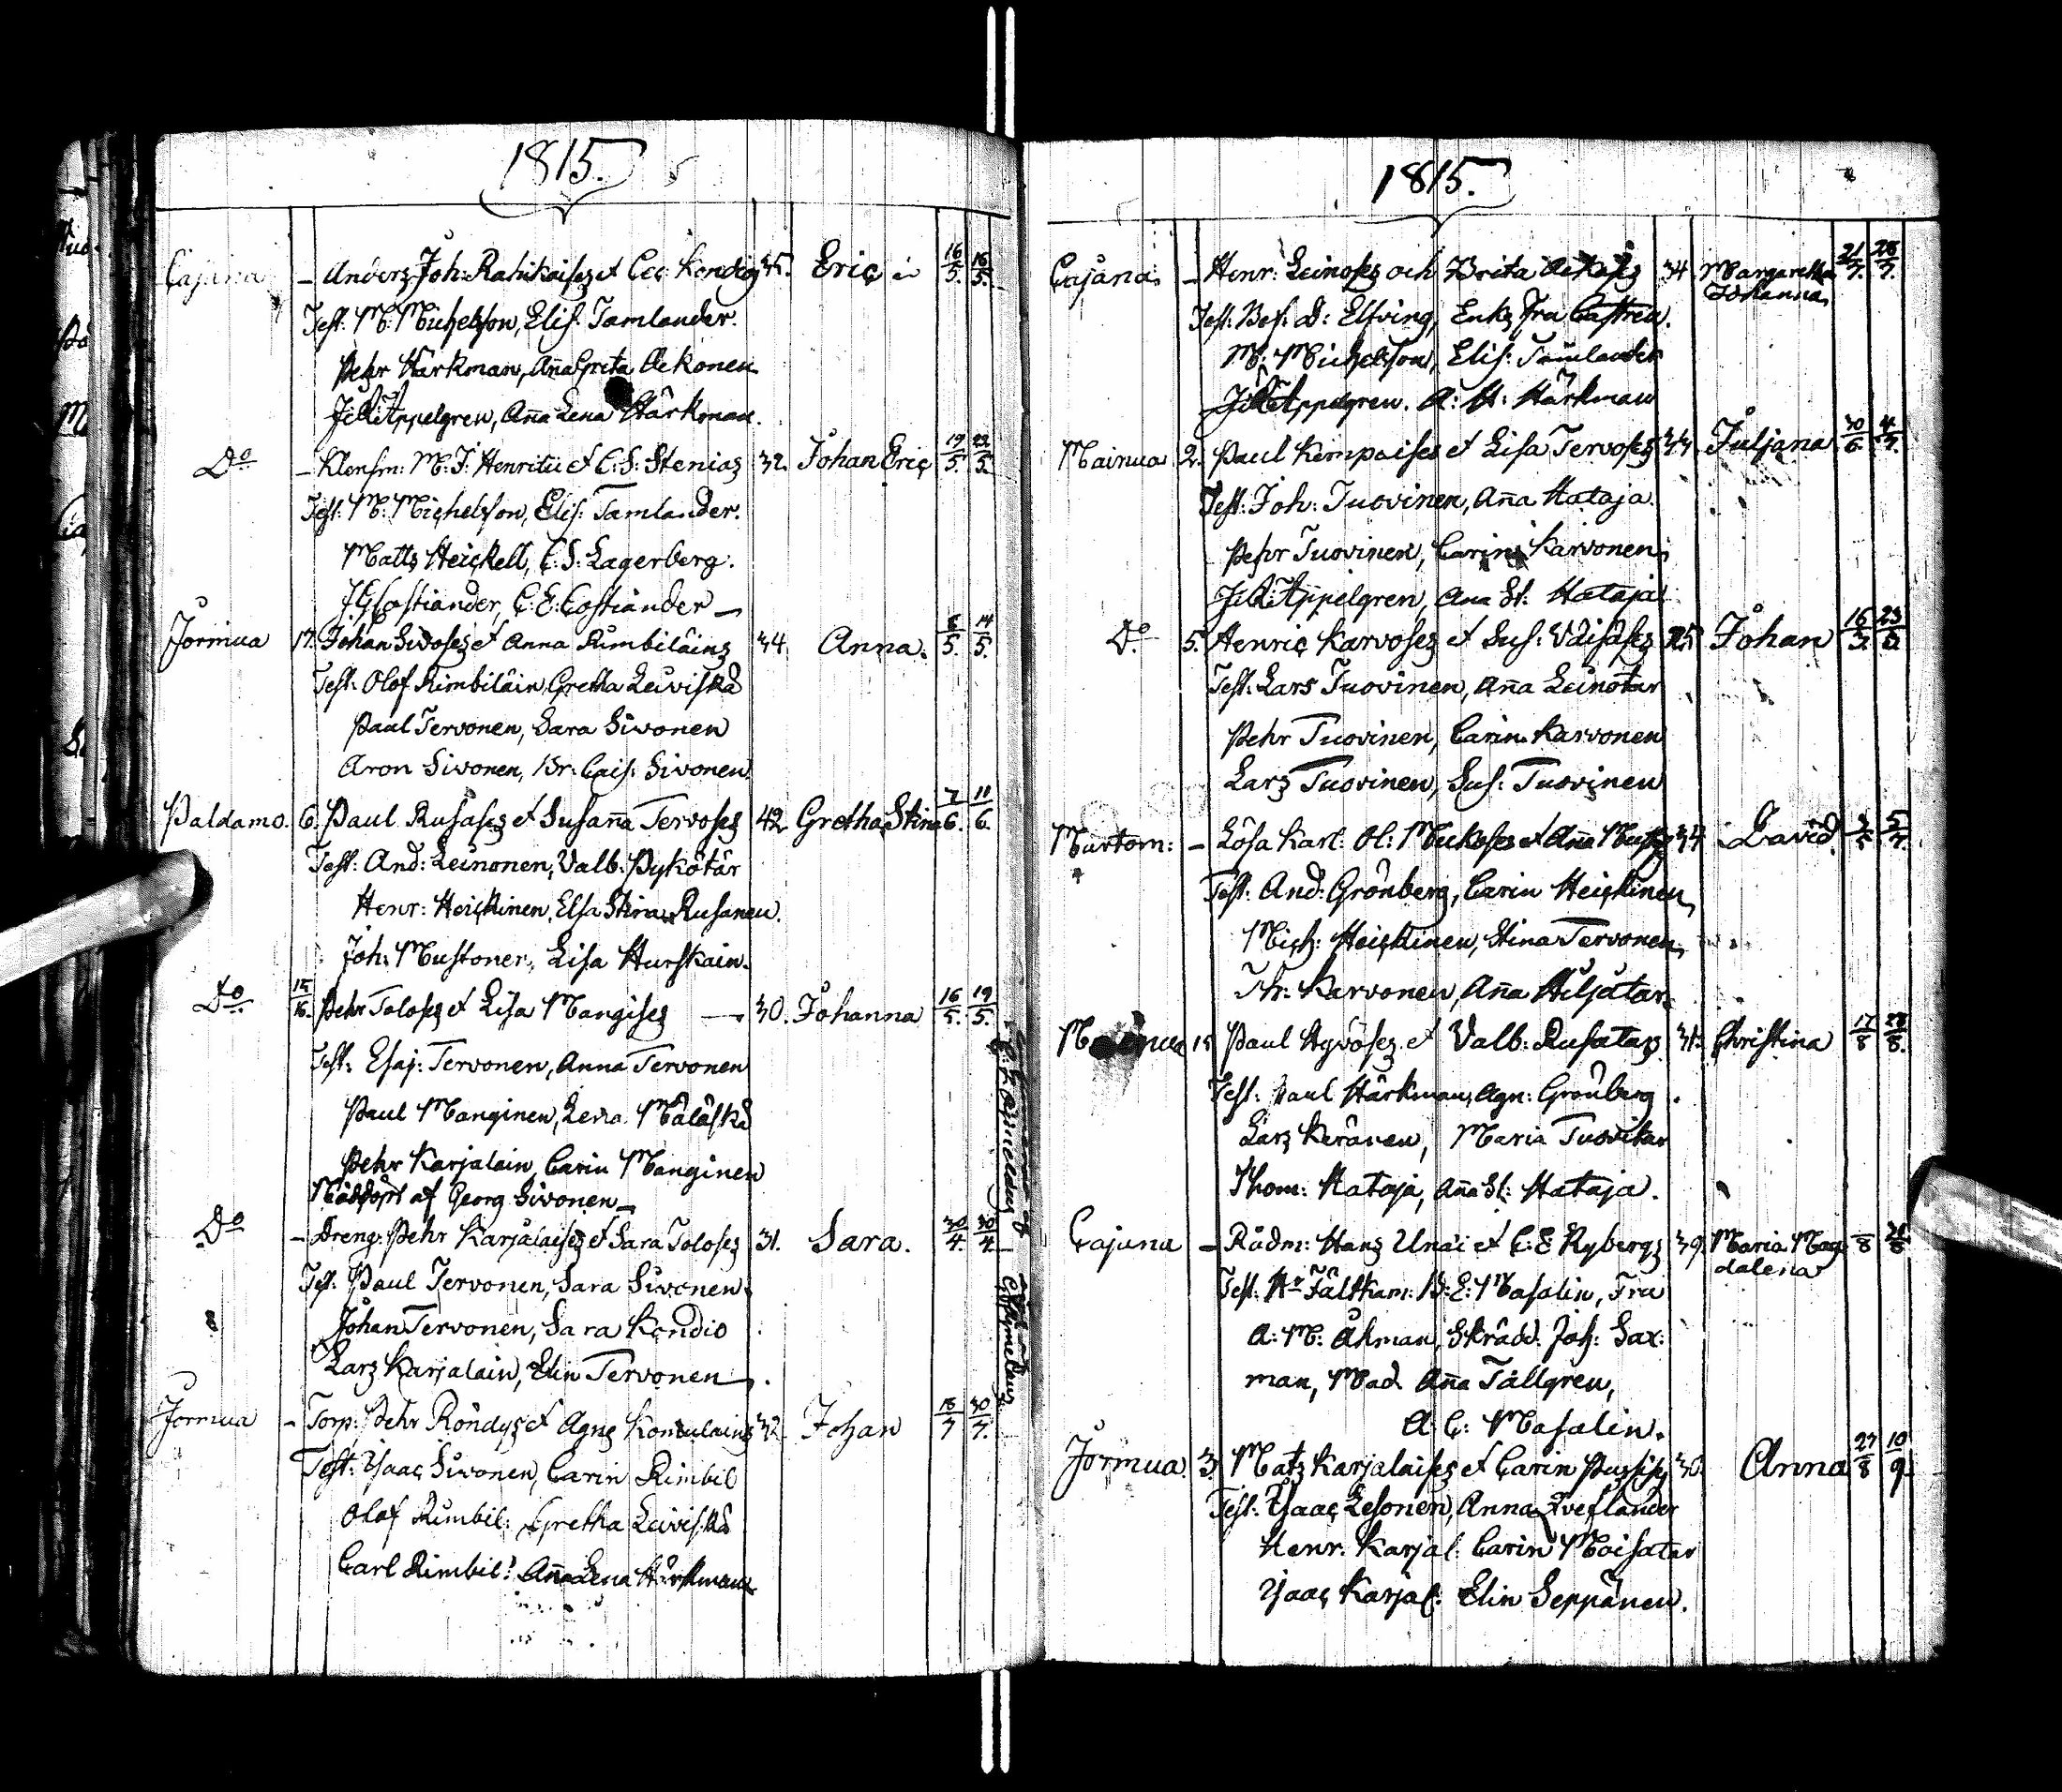 1815.
Cajana – Anders Joh: Rahikaises et Cec: Kondios 35. Eric 16/5. 16/5.
Test: M: Michelsson, Elis: Tamlander.
Pehr Härkman, Aña Greta Aekonen
Appelgren, Aña Lena Härkman.
Do – Klensm: M: J: Henricii et C: S: Stenias 32. Johan Eric 19/5. 22/5.
Test: M: Michelsson, Elis: Tamlander.
Matts Heickell, C: S: Lagerberg.
Costiander, C: E: Costiander –
Jormua 17. Johan Sivoses et Anna Rimbiläins 34. Anna. 8/5. 14/5.
Test: Olof Rimbiläin, Gretha Leiviskä
Paul Tervonen, Sara Sivonen
Aron Sivonen, Br: Cais: Sivonen.
Paldamo. 6. Paul Rusases et Susaña Tervoses 42. Gretha Stina 7/6. 11/6.
Test: And: Leinonen, Valb: Pykötär
Henr: Heickinen, Elsa Stina Rusanen.
Joh: Mustonen, Lisa Hurskain.
Do 15/16. Pehr Toloses et Lisa Mangises – 30. Johanna 16/5. 19/5.
Test: Esaj: Tervonen, Anna Tervonen
Paul Manginen, Lena Mäläskä
Pehr Karjalain, Carin Manginen
Nöddöpt af Georg Sivonen –
Do – Dreng: Pehr Karjalaises et Sara Toloses 31. Sara. 30/4. 30/4.
Test: Paul Tervonen, Sara Sivonen.
Johan Tervonen, Sara Kondio
Lars Karjalain, Elin Tervonen.
Jormua – Torp: Pehr Röndys et Agnes Kondulains 32. Johan 15/7 30/7.
Test: Ysaac Sivonen, Carin Rimbil
Olof Rimbil: Gretha Leiviskä
Carl Rimbil: Aña Lena Härkman
1815.
Cajana – Henr: Leinoses och Brita Aekoses 34 Margaretha Johanna 21/7. 28/7.
Test: Bef: D: Elfving, Enkefru Castren.
M: Michelsson, Elis: Tamlander
Appelgren. A: H: Härkman
Mainua 2. Paul Kempaises et Lisa Tervoses 33. Juljana 30/6. 4/7.
Test: Joh: Tuovinen, Aña Hataja.
Pehr Tuovinen, Carin Karvonen
Appelgren, Ana St: Hataja
Do 5. Henric Karvoses et Sus: Väisäses 25 Johan 16/7. 23/7.
Test: Lars Tuovinen, Aña Leinotar
Pehr Tuovinen, Carin Karvonen
Lars Tuovinen, Sus: Tuovinen
Murtom: – Lösa Karl: Ol: Mickoses et Aña 34 David. 5/7.
Test: And: Grönberg, Carin Heickinen
Mich: Heickinen, Stina Tervonen
Karvonen, Aña Hiljatar.
15 Paul Hyvöses et Valb: Rusatar 31. Christina 17/8 28/8.
Test: Paul Härkman, Agn: Grönberg.
Lars Keränen, Maria Tuovitar
Thom: Hataja, Aña St: Hataja.
Cajana – Rådm: Hans Unai et C: E Rybergs 39. Maria Magdalena /8 /8.
Test: Hr Fältkam: B: E: Masalin, Fru
A: M: Åkman, Skrädd. Joh: Saxman, Mad. Aña Tällgren,
A: C: Masalin.
Jormua. 3. Mats Karjalaises et Carin 30. Anna 27/8 10/9.
Test: Ysaac Lesonen, Anna Tveflander
Henr: Karjal: Carin Moisatar
Ysaac Karjal: Elin Seppänen.